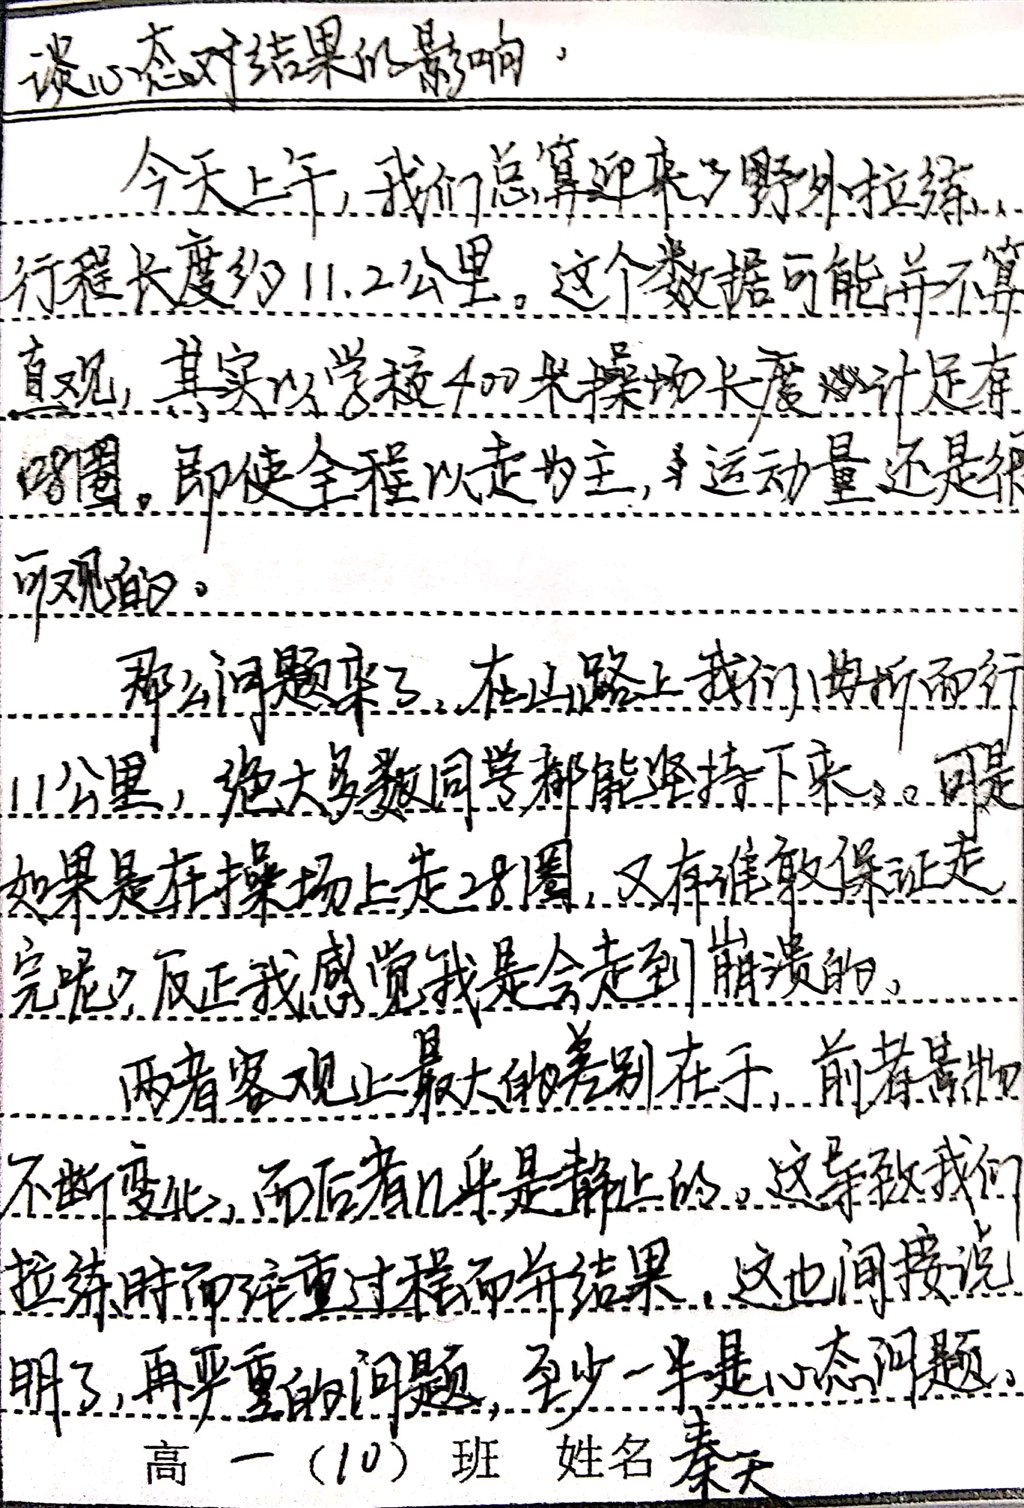 谈心态对结果的影响.
今天上午,我们总算迎来了野外拉练.
行程长度约11.2公里。这个数据可能并不算
直观,其实以学校400米操场长度计足有
28圈。即使全程以走为主,运动量还是很
可观的。
那么问题来了.在山路上我们曲折而行
11公里,绝大多数同学都能坚持下来。可是
如果是在操场上走28圈,又有谁敢保证走
完呢?反正我感觉我是会走到崩溃的.
两者客观上最大的差别在于,前者景物
不断变化,而后者几乎是静止的。这导致我们
拉练时而注重过程而并结果.这也间接说
明了,再严重的问题,至少一半是心态问题.
高一(10)班 姓名秦天